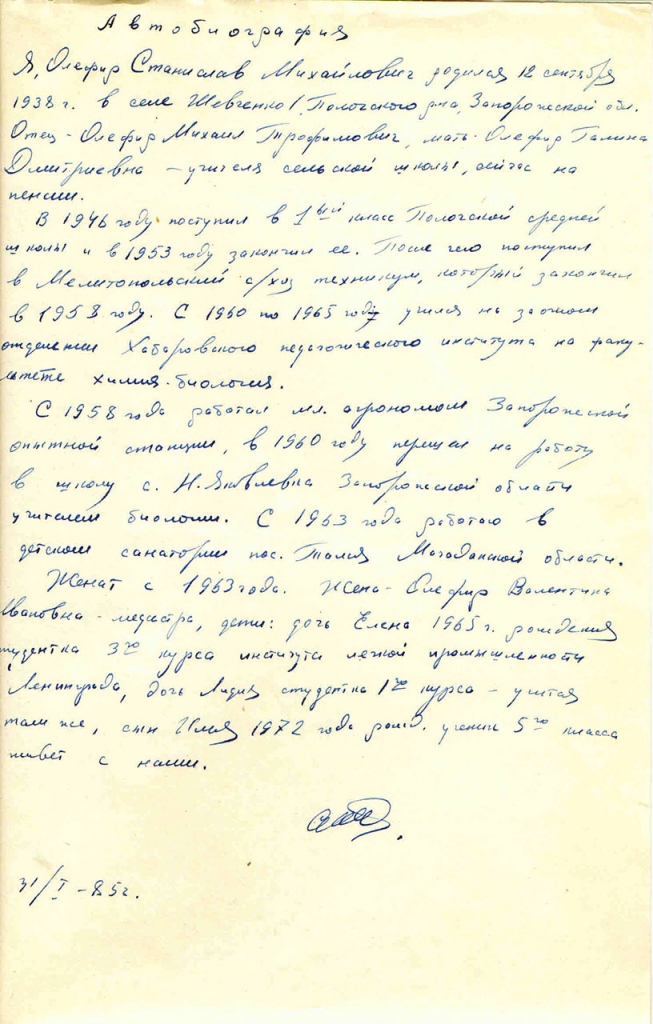 Автобиография
Я, Олефир Станислав Михайлович родился 12 сентября
1938 г. в селе Шевченко I, Пологского р-на, Запорожской обл.
Отец - Олефир Михаил Трофимович, мать - Олефир Галина
Дмитриевна - учителя сельской школы, сейчас на
пенсии.
В 1946 году поступил в 1ый класс Пологской средней
школы и в 1953 году закончил ее. После чего поступил
в Мелитопольский с/хоз техникум, который закончил
в 1958 году. С 1960 по 1965 год учился на заочном
отделении Хабаровского педагогического института на факу-
льтете химия-биология.
С 1958 года работал мл. агрономом Запорожской
опытной станции, в 1960 году перешел на работу
в школу с. Н. Яковлевка Запорожской области
учителем биологии. С 1963 года работаю в
детском санатории пос. Талая Магаданской области.
Женат с 1963 года. Жена - Олефир Валентина
Ивановна - медсестра, дети: дочь Елена 1965 г. рождения
студентка 3го курса института легкой промышленности
Ленинграда, дочь Лидия студентка 1го курса - учится
там же, сын Илья 1972 года рожд. ученик 5го класса
живет с нами.
31/I - 85 г.